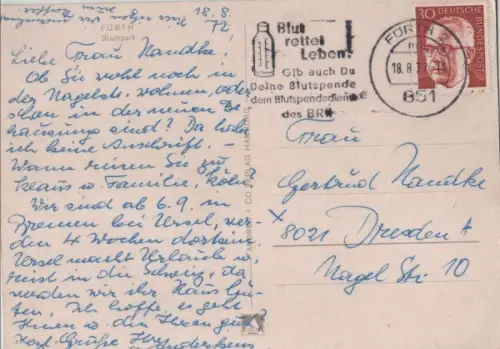 18.8.
72
FÜRTH
Stadtpark
Liebe Frau Nandke!
Ob Sie wohl noch in
der Nagelstr. wohnen, oder
schon in der neuen Be-
hausung sind? Da hab
ich keine Anschrift. –
Wann reisen Sie zu
Klaus u. Familie, Köln?
Wir sind ab 6.9. in
Bremen bei Ursel, wer-
den 4 Wochen dort sein
Ursel macht Urlaub u.
reist in die Schweiz, da
werden wir ihr Haus hü-
ten. Ich hoffe, es geht
Ihnen u. den Ihren gut?
Herzl. Grüße Ihre
Blut
rettet
Leben!
Gib auch Du
Deine Blutspende
dem Blutspendedienst
des BRK
FÜRTH
18.8.72
851
30
DEUTSCHE BUNDESPOST
Frau
Gertrud Nandke
8021 Dresden A
Nagel Str. 10